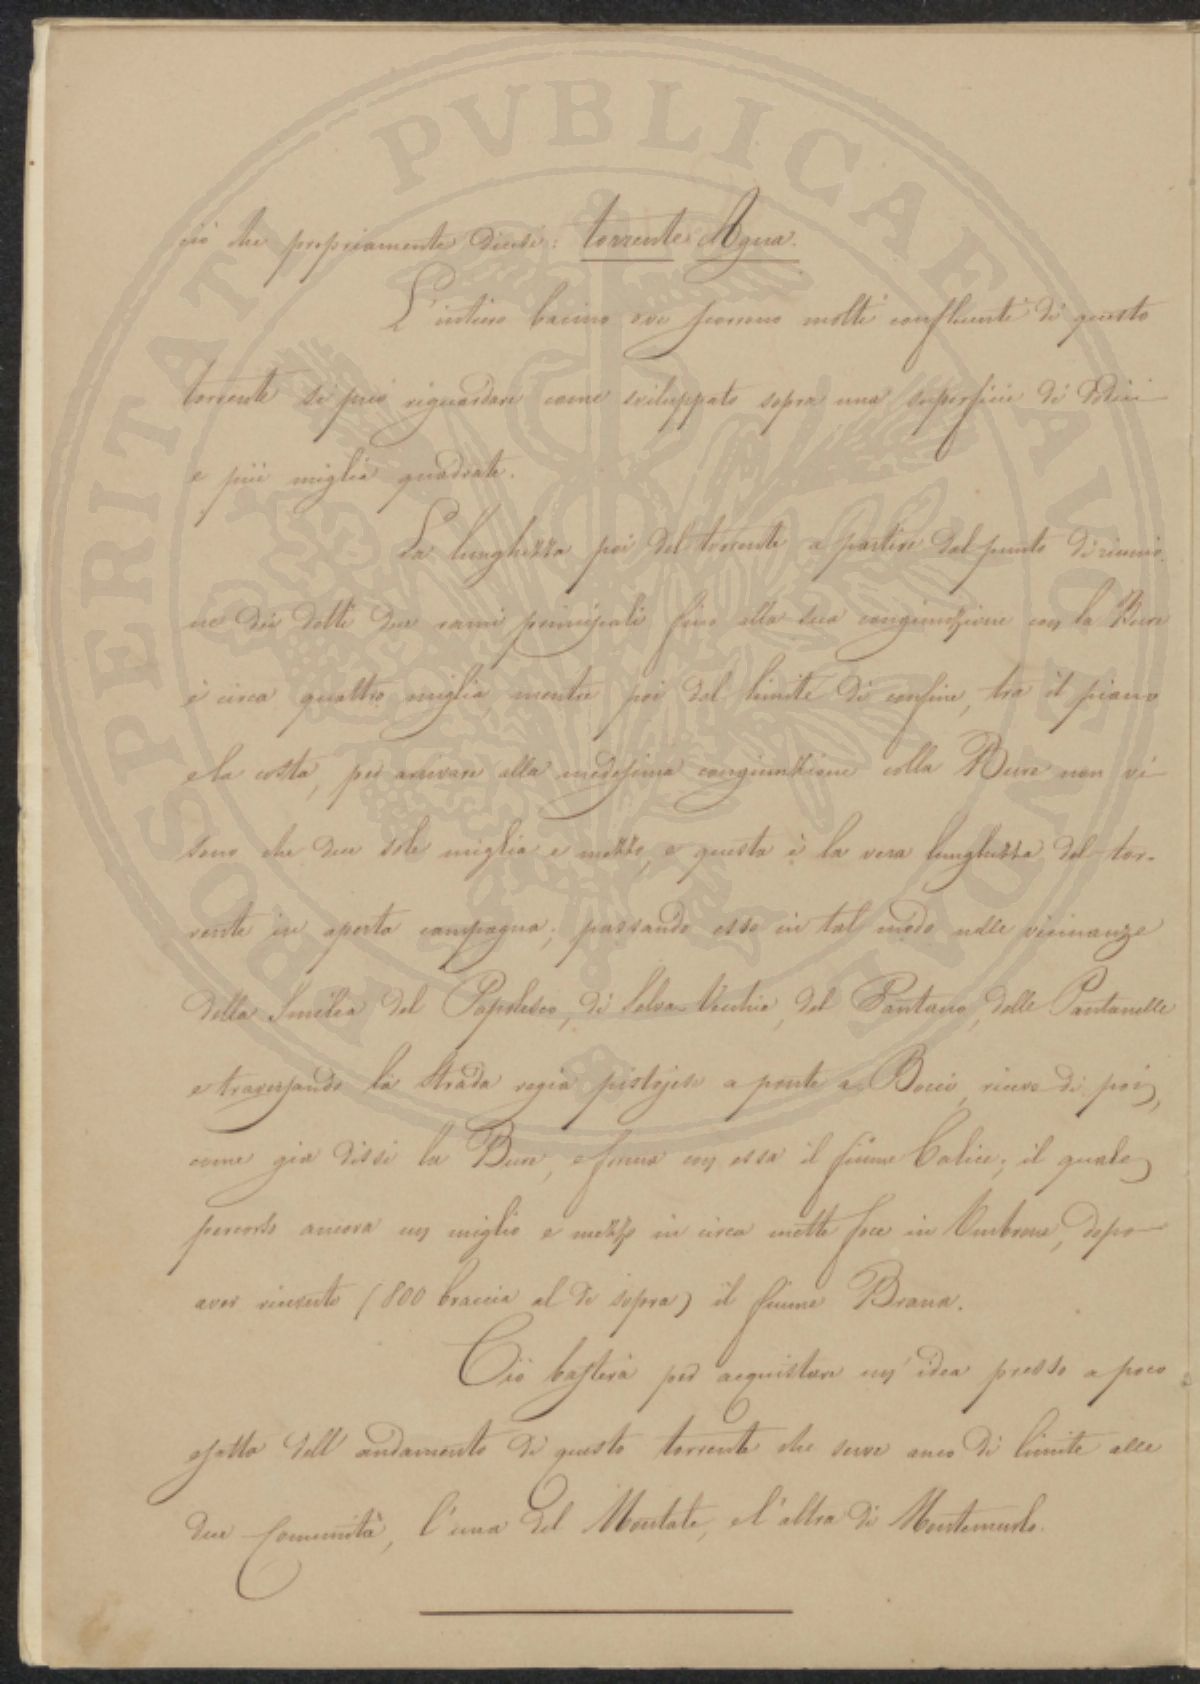 ciò che propriamente dicesi: torrente Agna.
L'intiero bacino ove scorrono molti confluenti di questo
torrente si può riguardare come sviluppato sopra una superficie di dodici
e più miglia quadrate.
La lunghezza poi del torrente a partire dal punto di riunio-
ne dei detti due rami principali fino alla sua congiunzione con la Bure
è circa quattro miglia, mentre poi dal limite di confine, tra il piano
e la costa, per arrivare alla medesima congiunzione colla Bure non vi
sono che due sole miglia e mezzo, e questa è la vera lunghezza del tor-
rente in aperta campagna; passando esso in tal modo nelle vicinanze
della Smilea del Popolesco, di Selva-Vecchia, del Pantano, delle Pantanelle
e traversando la strada regia pistojese a ponte a Bocci, riceve di poi,
come già dissi la Bure, e forma con essa il fiume Calice; il quale
percorso ancora un miglio e mezzo in circa mette foce in Ombrone, dopo
aver ricevuto (800 braccia al di sopra) il fiume Brana.
Ciò basterà per acquistare un'idea presso a poco
esatta dell'andamento di questo torrente che serve anco di limite alle
due Comunità, l'una del Montale, e l'altra di Montemurlo.
PROSPERITATI PVBLICAE AVGENDAE